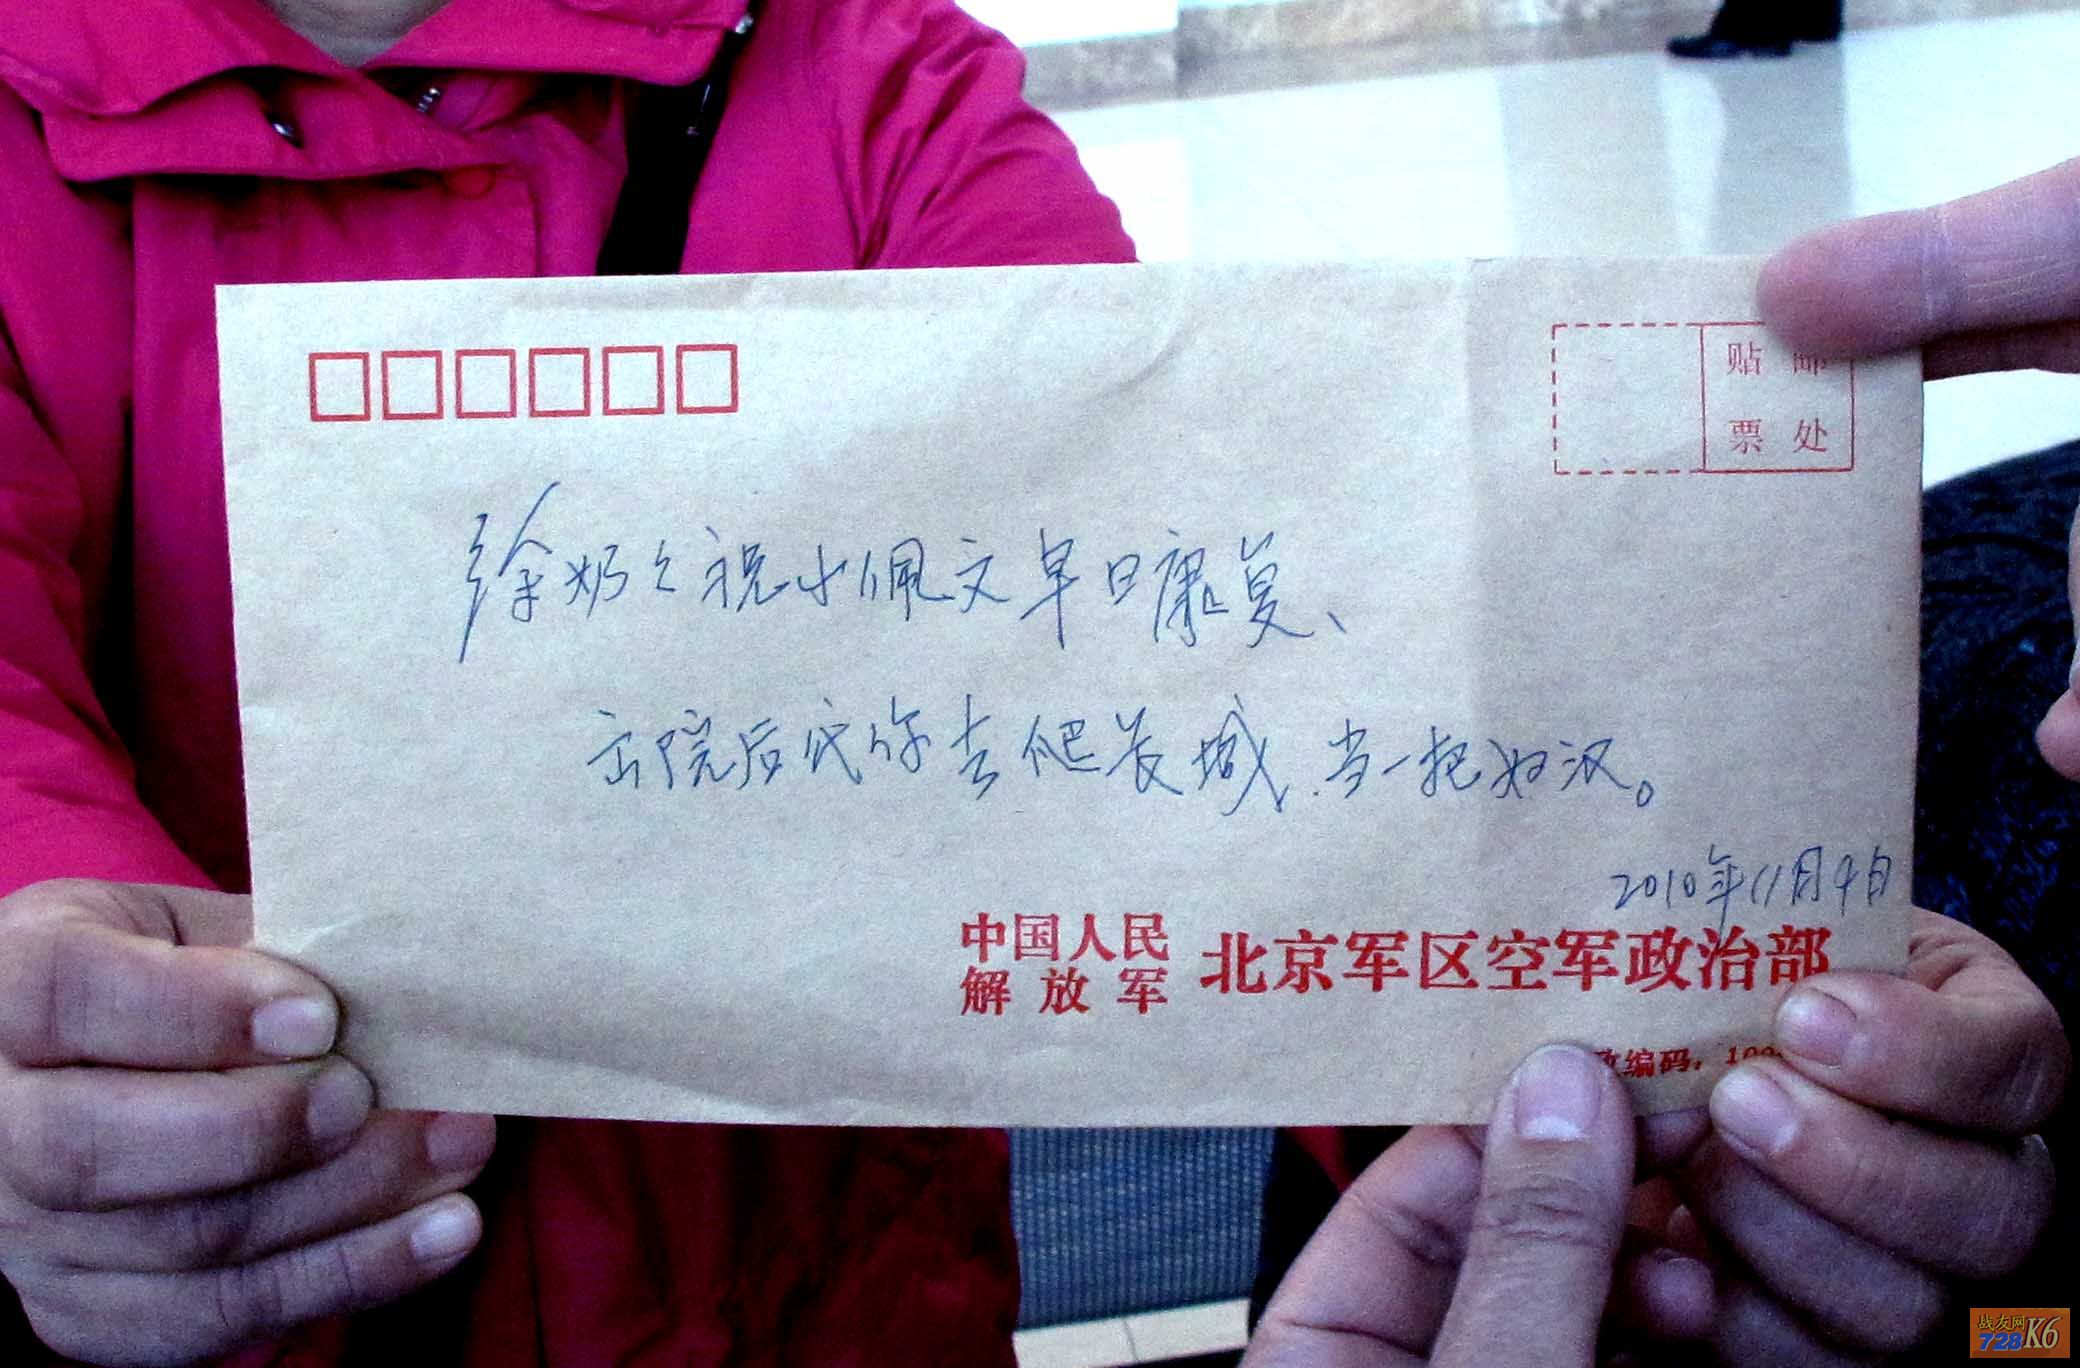 贴邮
票处
徐奶々祝小佩文早日康复、
出院后我你去爬长城.当一把好汉。
2010年11月4日
中国人民
解放军
北京军区空军政治部
政编码:100
战友网
728K6